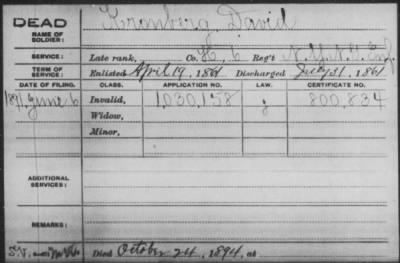 DEAD
NAME OF SOLDIER:
Kronberg, David
SERVICE:
Late rank, Co. K, 6 Reg't N.Y.N.G. Inf.
TERM OF SERVICE:
Enlisted April 19, 1861 Discharged July 31, 1861
DATE OF FILING. CLASS. APPLICATION NO. LAW. CERTIFICATE NO.
1891, June 6 Invalid, 1,030,158 j 800,834
Widow,
Minor,
ADDITIONAL SERVICES:
REMARKS:
Died October 24, 1894, at